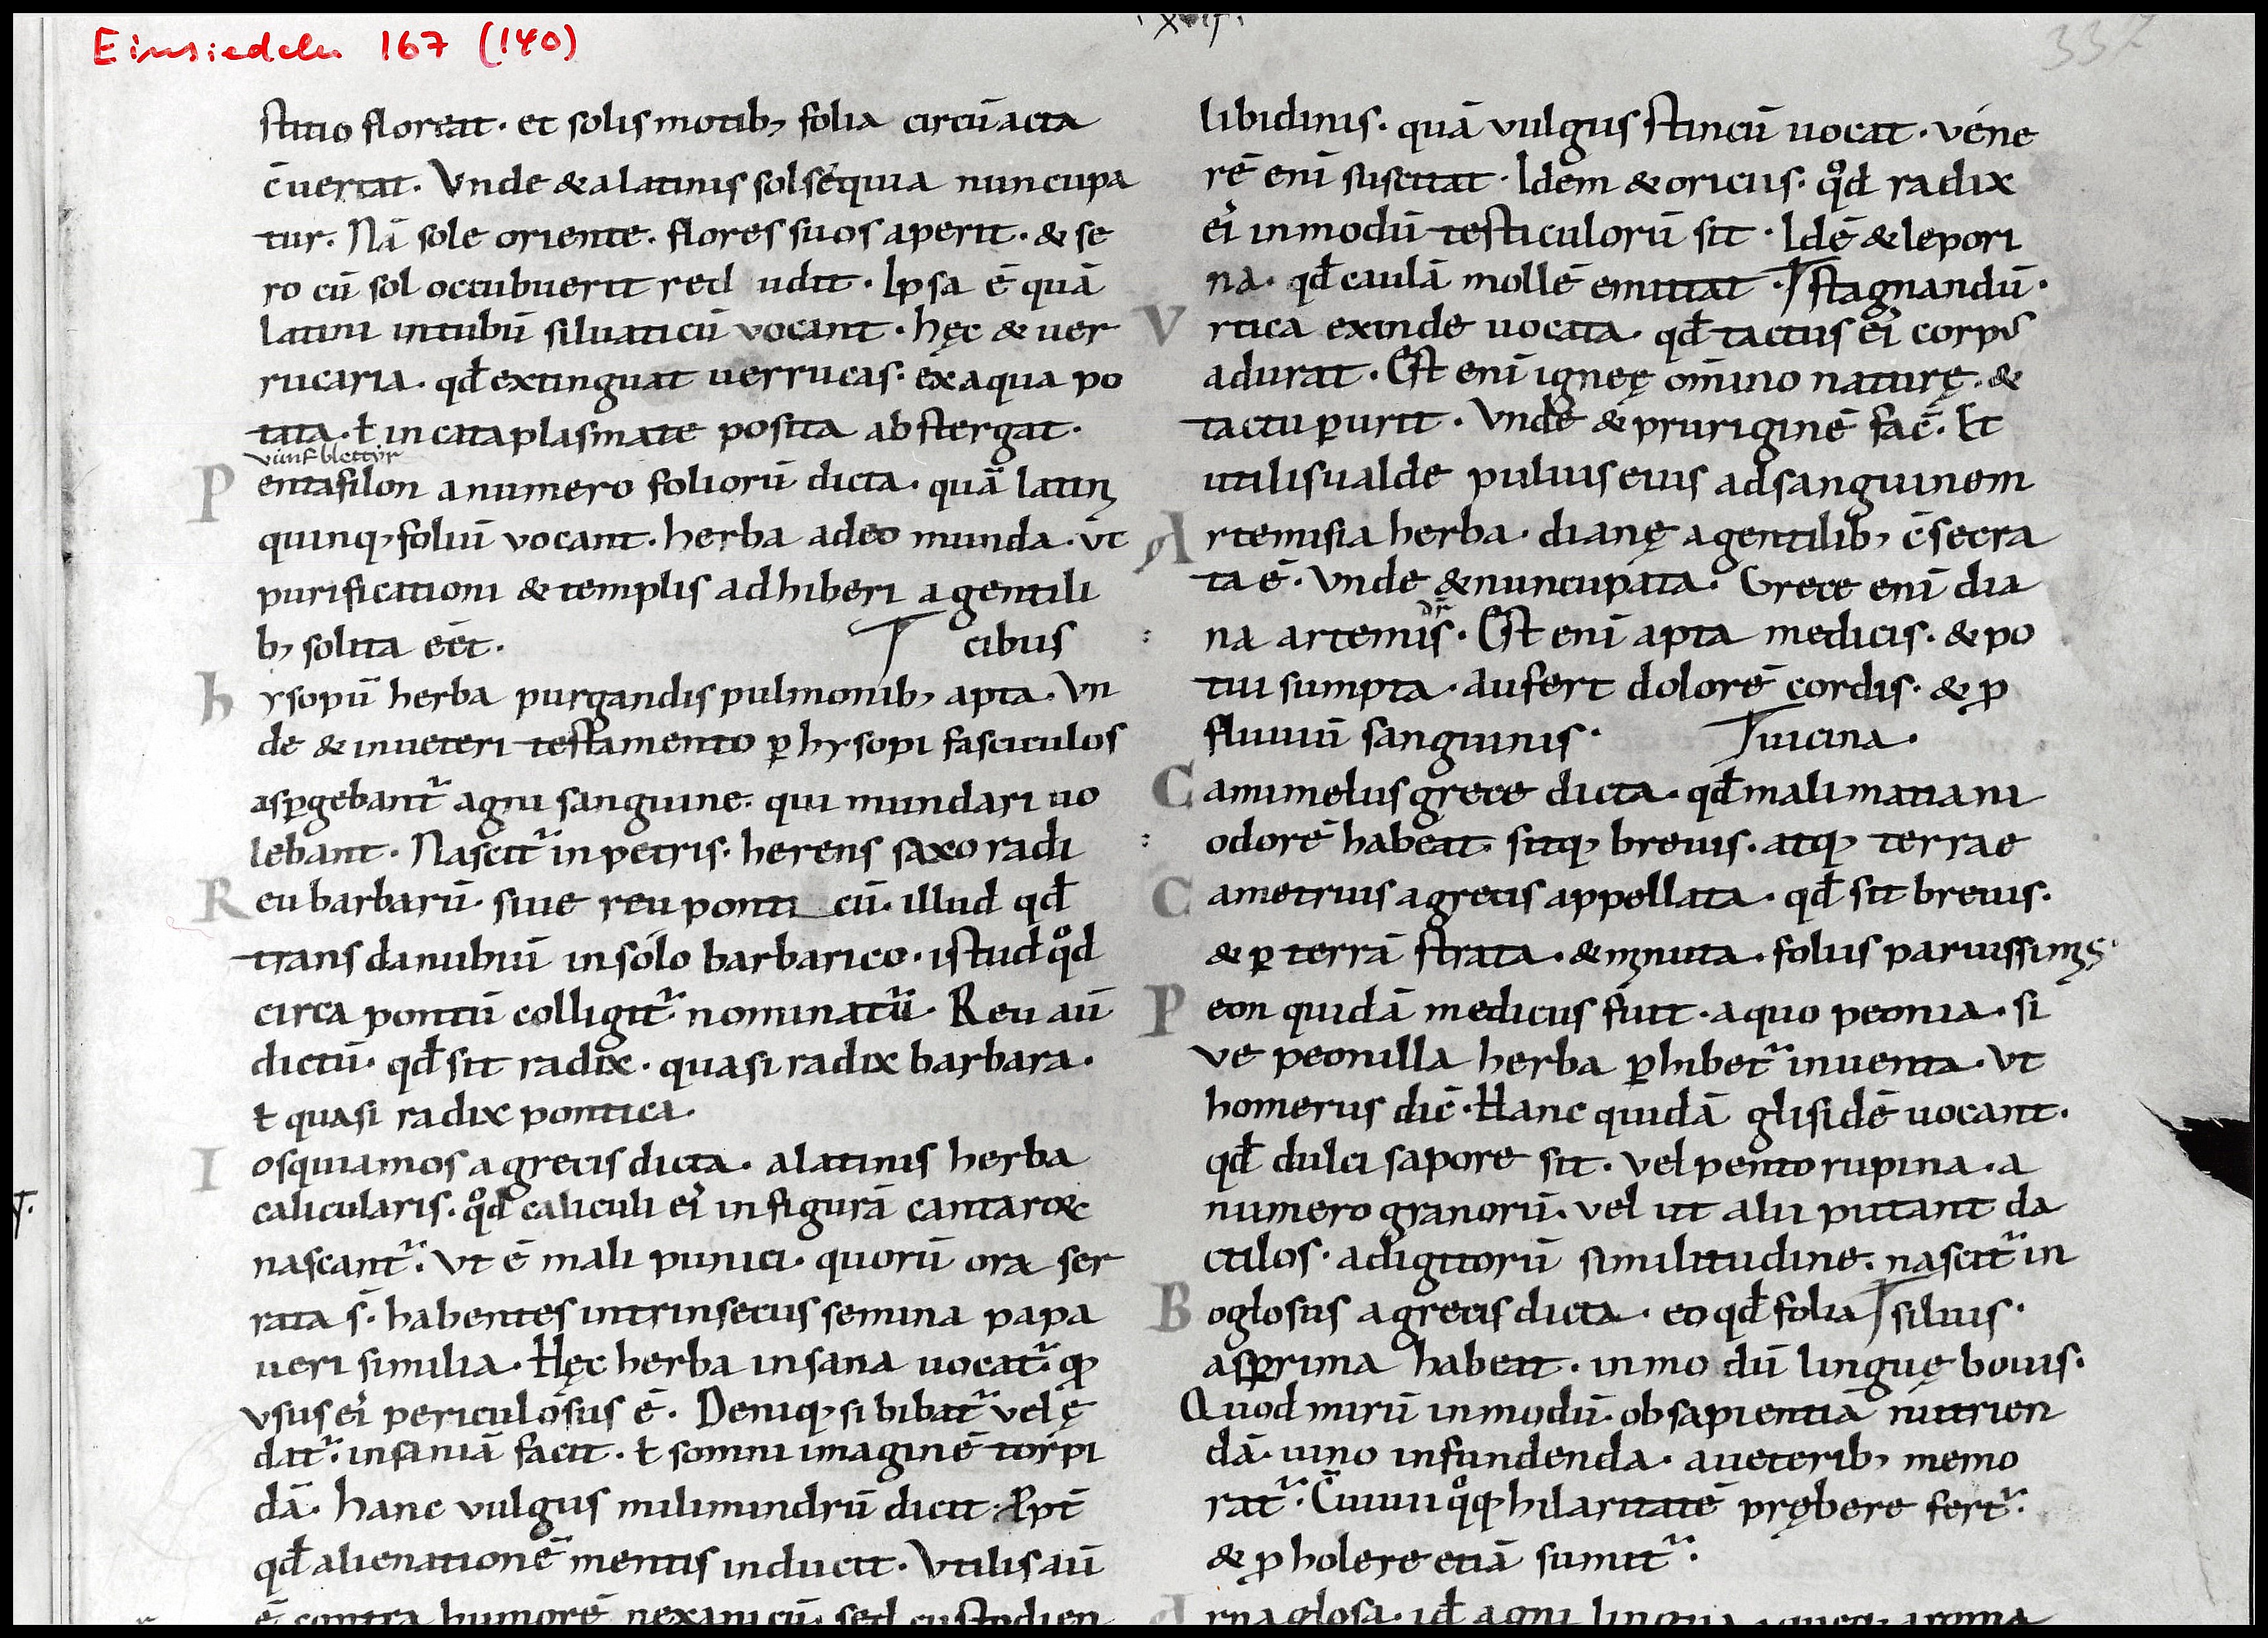 Einsiedeln 167 (140)
.xvij.
337
stitio floreat · et solis motib; folia circū acta
c̄uertat. Vnde & a latinis solséquia nuncupa
tur. Nā sole oriente. flores suos aperit. & se
ro cū sol occubuerit recl udit. Ipsa ē quā
latini intubū siluaticū vocant. hęc & uer
rucaria. qđ extinguat uerrucas. ex aqua po
tata. ƚ in cataplasmate posita abstergat.
vimfblettyr
Pentafilon a numero foliorū dicta. quā latini
quinq; foliū vocant. herba adeo munda. vt
purificationi & templis adhiberi a gentili
b; solita eēt.
cibus
hysopū herba purgandis pulmonib; apta. Vn
de & in ueteri testamento ꝑ hysopi fasciculos
aspgebant᷑ agni sanguine. qui mundari uo
lebant. Nascit᷑ in petris. herens saxo radi
Reu barbarū. siue reu ponti cū. illud qđ
trans danubiū in sólo barbarico. istud qͦd
circa pontū colligit᷑ nominatū. Reu aū
dictū. qđ sit radix. quasi radix barbara.
ƚ quasi radix pontica.
Iosquiamos a grecis dicta. a latinis herba
calicularis. qͦd caliculi ei᷒ in figurā cantaroꝝ
nascant᷑. Vt ē mali punici. quorū ora ser
rata s̄. habentes intrinsecus semina papa
ueri similia. Hęc herba insana uocat᷑ qꝫ
vsus ei᷒ periculósus ē. Deniq; si bibat᷑ vel ę
dit᷑. insaniā facit. ƚ somni imaginē torpi
dā. hanc vulgus milimindrū dicit. ꝓpt̄
qđ alienationē mentis inducit. Vtilis aū
ē contra humorē nexanicū. sed custodien
libidinis. quā vulgus stincū uocat. véne
rē enī suscitat. Idem & oricus. qͦd radix
ei᷒ in modū testiculorū sit. Idē & lepori
na. qđ caulā mollē emittat. stagnandū.
Vrtica exinde uocata. qđ tactus ei᷒ corp᷒
adurat. Est enī igneę om̄ino naturę. &
tactu ꝑurit. Vnde & pruriginē fac̄. Et
utilis ualde puluis eius ad sanguinem
Artemisia herba. dianę a gentilib; c̄secra
ta ē. Vnde & nuncupata. Grece enī dia
dr̄
na artemis. Est enī apta medicis. & po
tui sumpta. aufert dolorē cordis. & ꝓ
fluuiū sanguinis.
uicina.
Camimelus grece dicta. qđ mali matiani
odorē habeat sitq; breuis. atq; terrae
Cametrius a grecis appellata. qđ sit breuis.
& ꝑ terrā strata. & minuta. foliis paruissimis.
Peon quidā medicus fuit. a quo peonia. si
ve peonilla herba ꝑhibet᷑ inuenta. Vt
homerus dic̄. Hanc quidā glisidē uocant.
qđ dulci sapore sit. vel pentorupina. a
numero granorū. vel ut alii putant da
ctilos. a digitorū similitudine. nascit᷑ in
Boglosus a grecis dicta. eo qđ folia siluis.
asꝑrima habeat. in mo dū linguę bouis.
Quod mirū in modū. ob sapientiā nutrien
dā. uino infundenda. a ueterib; memo
rat᷑. C̄uiuii qͦq; hilaritatē prębere fert᷑.
& ꝓ holere etiā sumit᷑.
Arnaglosa. id̄ agni lingua